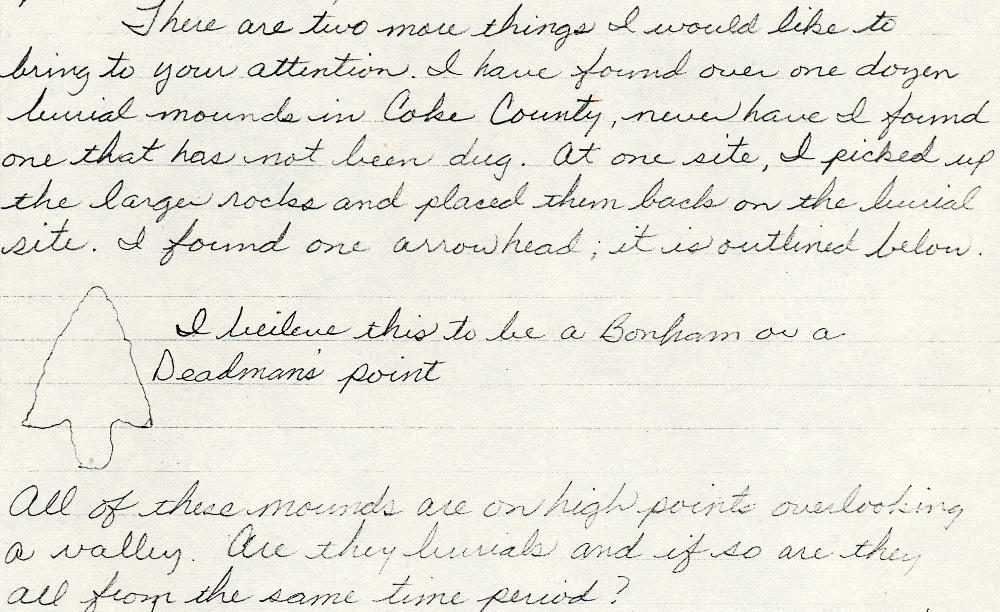 There are two more things I would like to
bring to your attention. I have found over one dozen
burial mounds in Coke County, never have I found
one that has not been dug. At one site, I picked up
the larger rocks and placed them back on the burial
site. I found one arrowhead; it is outlined below.
I beileve this to be a Bonham or a
Deadman's point
All of these mounds are on high points overlooking
a valley. Are they burials and if so are they
all from the same time period?